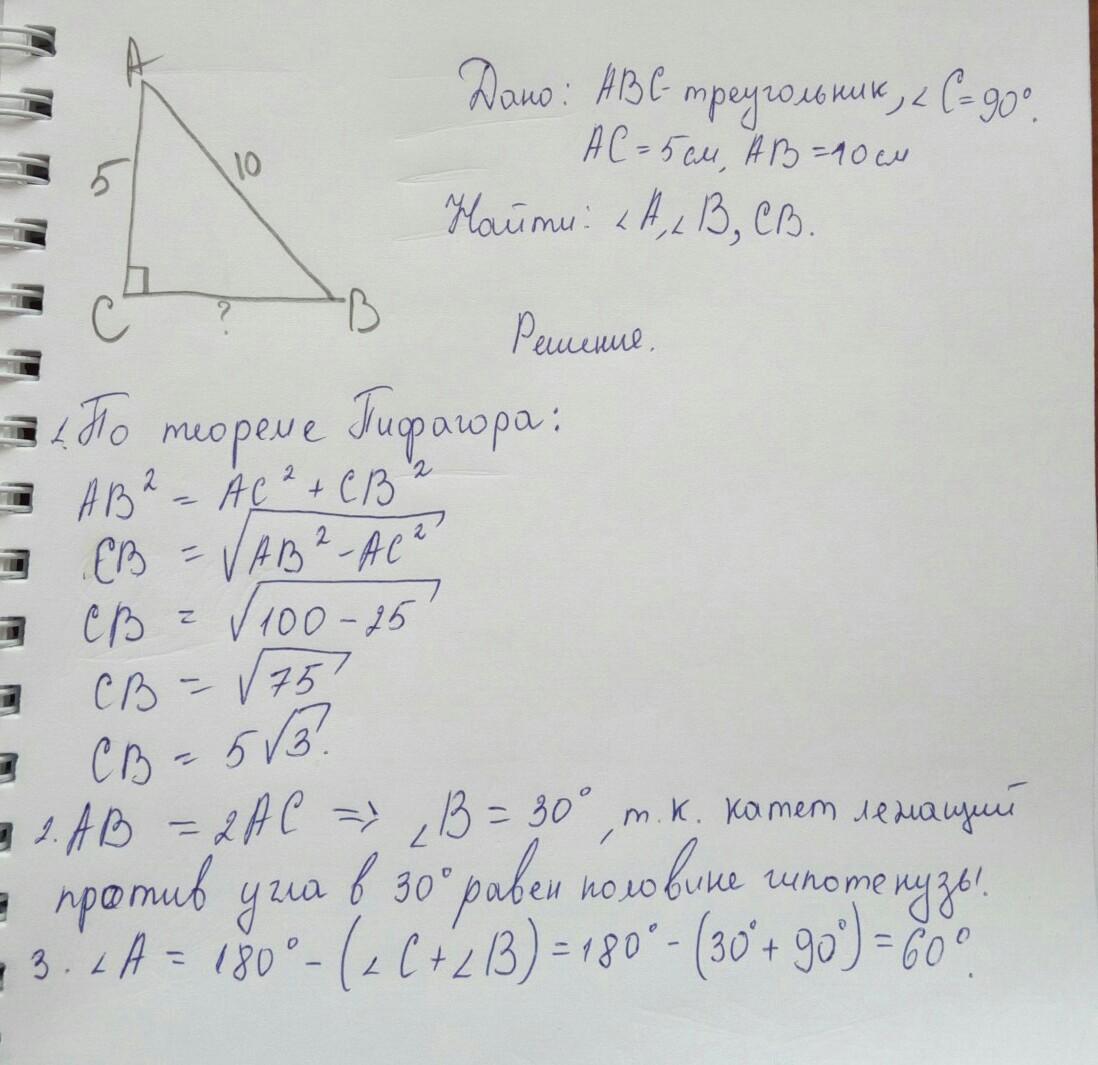 A
5
10
C
?
B
Дано: ABC треугольник, ∠C=90°.
AC=5см, AB=10см
Найти: ∠A, ∠B, CB.
Решение.
1. По теореме Пифагора:
AB² = AC² + CB²
CB = √AB²-AC²
CB = √100-25
CB = √75
CB = 5√3.
2. AB = 2AC => ∠B = 30°, т.к. катет лежащий
против угла в 30° равен половине гипотенузы.
3. ∠A = 180° - (∠C+∠B) = 180° - (30°+90°) = 60°.